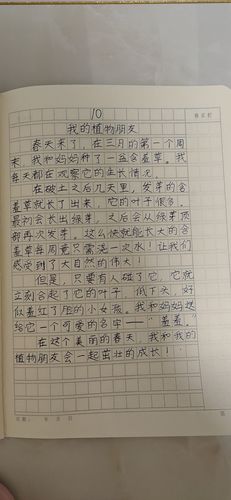 10
我的植物朋友
春天来了，在三月的第一个周
末，我和妈妈种了一盆含羞草。我
每天都在观察它的生长情况。
在破土之后几天里，发芽的含
羞草就长了出来，它的叶子很多，
最初会长出绿芽，之后会从绿芽顶
部再次发芽。这么快就能长大的含
羞草每周竟只需浇一次水！让我们
感受到了大自然的伟大！
但是，只要有人碰了它，它就
立刻合起了它的叶子，低下头，好
似羞红了脸的小女孩。我和妈妈送
给它一个可爱的名字——“羞羞。”
在这个美丽的春天，我和我的
植物朋友会一起茁壮的成长！